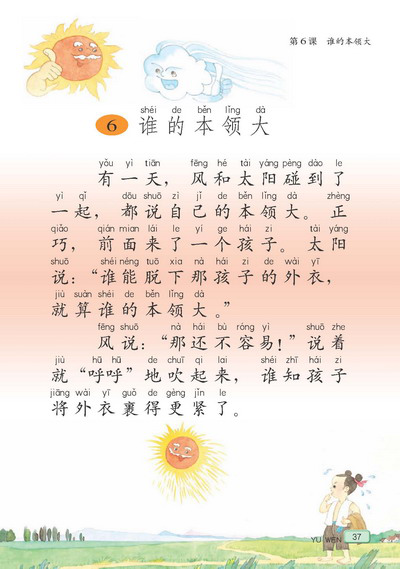 第6课 谁的本领大
shéi de běn lǐng dà
6 谁的本领大
yǒu yì tiān fēng hé tài yáng pèng dào le
有一天，风和太阳碰到了
yì qǐ dōu shuō zì jǐ de běn lǐng dà zhèng
一起，都说自己的本领大。正
qiǎo qián mian lái le yí ge hái zi tài yáng
巧，前面来了一个孩子。太阳
shuō shéi néng tuō xia nà hái zi de wài yī
说：“谁能脱下那孩子的外衣，
jiù suàn shéi de běn lǐng dà
就算谁的本领大。”
fēng shuō nà hái bù róng yì shuō zhe
风说：“那还不容易！”说着
jiù hū hū de chuī qi lai shéi zhī hái zi
就“呼呼”地吹起来，谁知孩子
jiāng wài yī guǒ de gèng jǐn le
将外衣裹得更紧了。
YU WEN 37